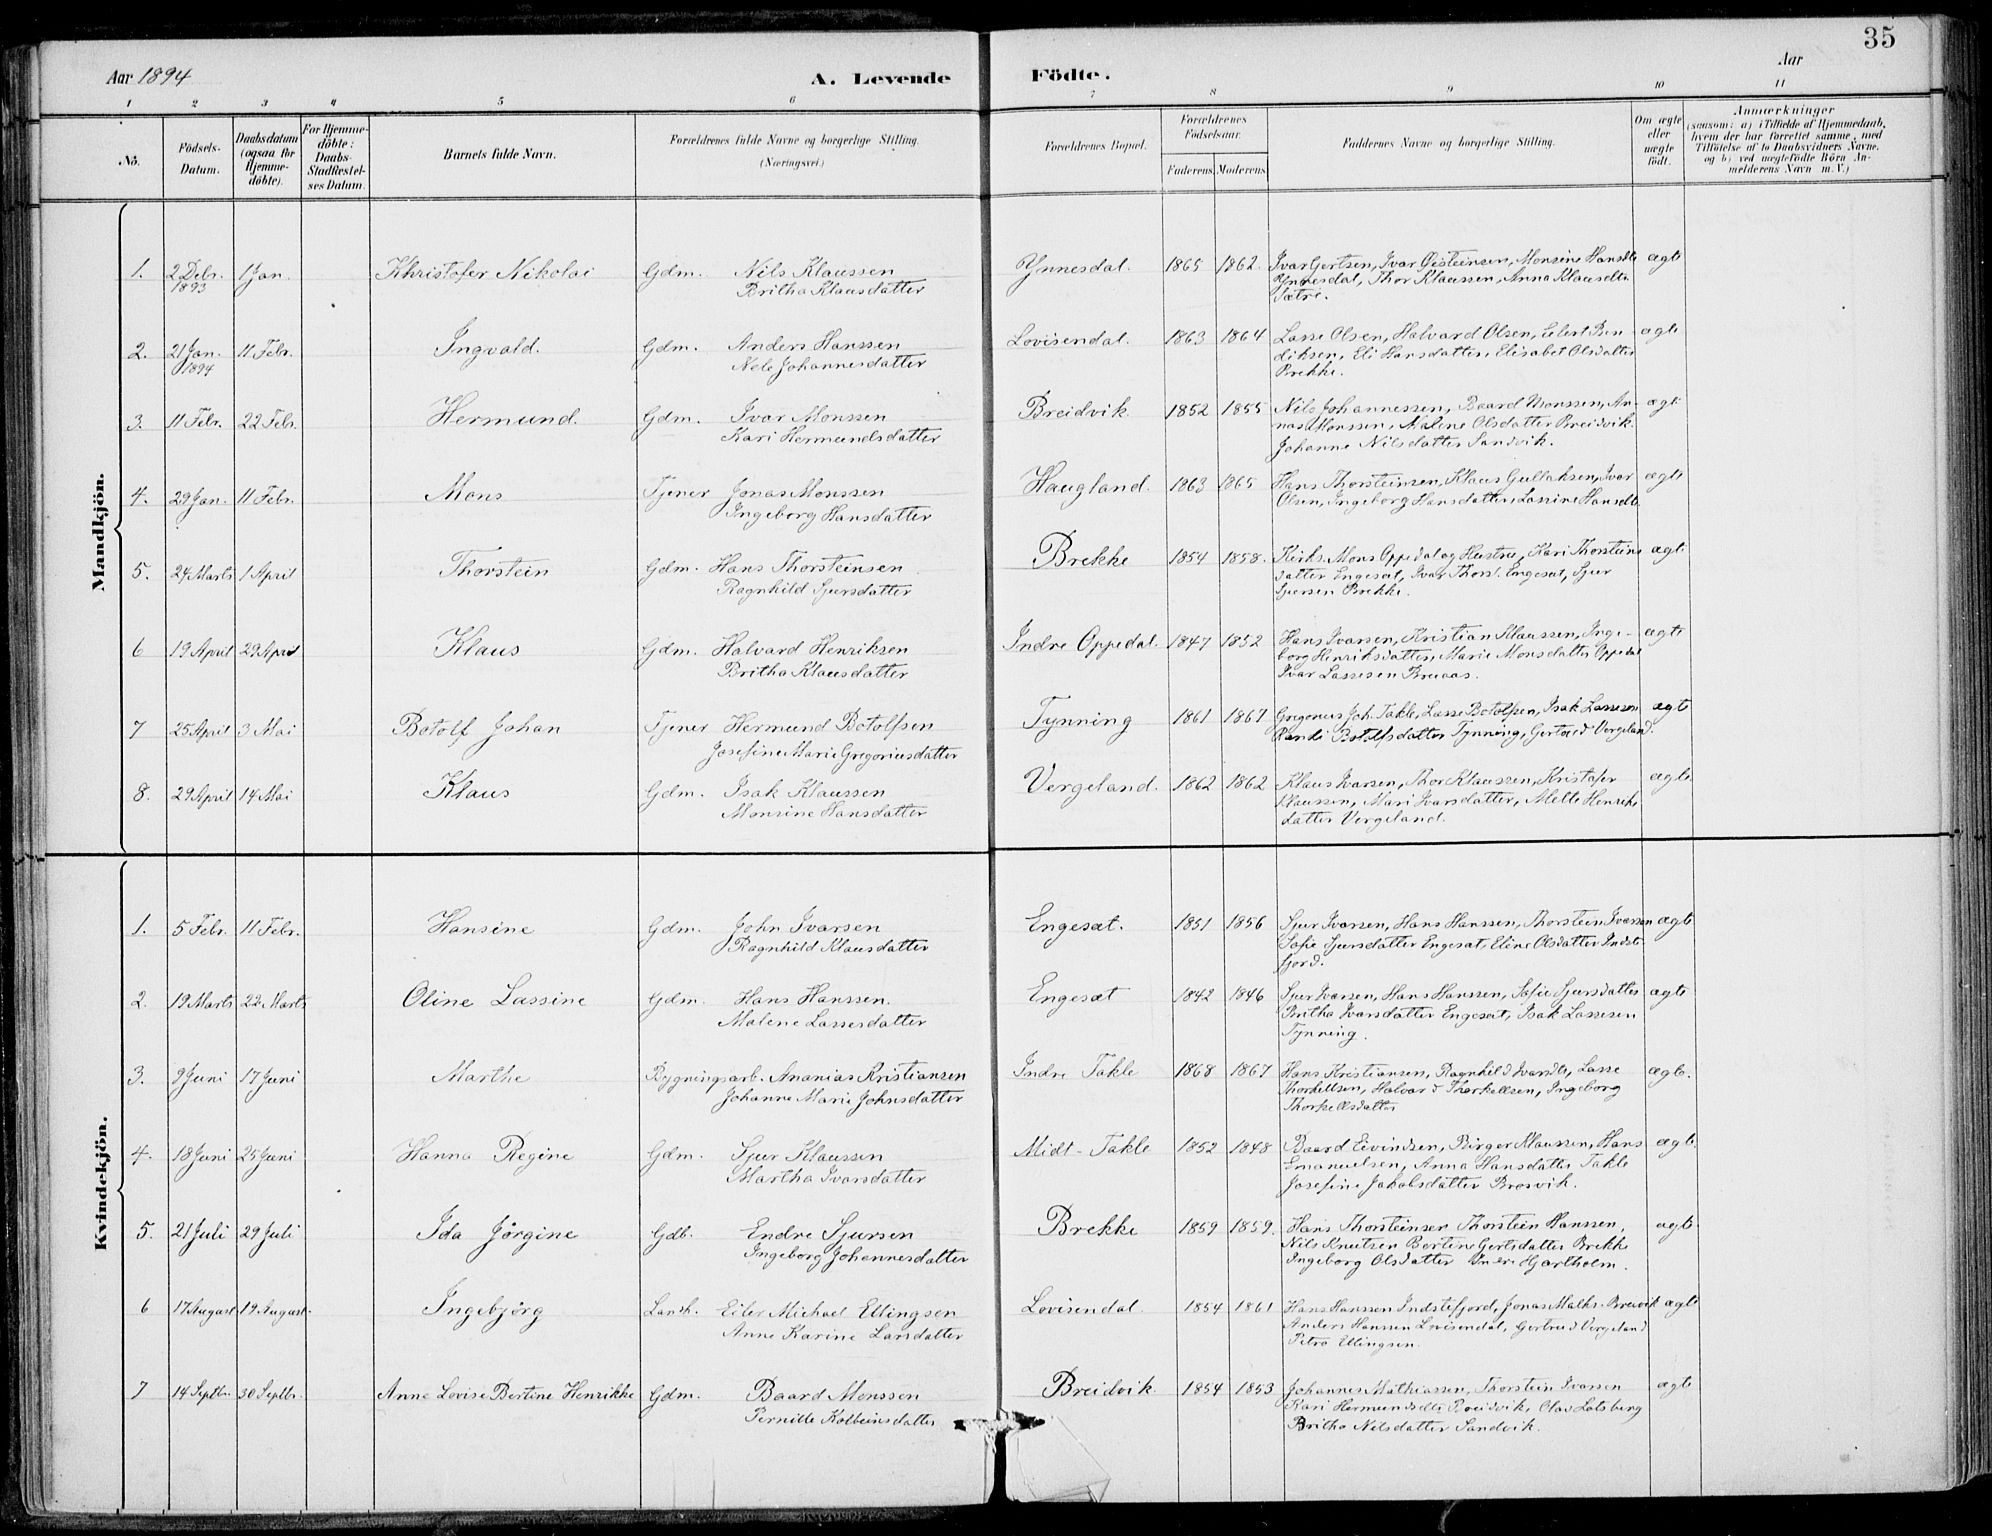 35
Aar 1894 A. Levende Födte. Aar
1 2 3 4 5 6 7 8 9 10 11
No.
Födsels-Datum.
Daabsdatum (ogsaa for Hjemmedöbte).
For Hjemmedöbte: Daabs-Stadfæstelses Datum.
Barnets fulde Navn.
Forældrenes fulde Navne og borgerlige Stilling. (Næringsvei.)
Forældrenes Bopæl.
Forældrenes Födselsaar.
Faderens Moderens
Faddernes Navne og borgerlige Stilling.
Om ægte eller uægte födt.
Anmærkninger
(saasom: a) i Tilfælde af Hjemmedaab,
hvem der har forrettet samme, med
Tilföielse af to Daabsvidners Navne.
og b) ved uægtefödte Börn An-
melderens Navn m. V.)
Mandkjön.
1. 2 Debr. 1893 1 Jan. Khristofer Nikolai Gdm. Nils Klaussen Ynnesdal. 1865 1862. Ivar Gertsen, Ivar Oisteinsen, Monsine Hansdtr ægte
Britha Klausdatter Ynnesdal, Thor Klaussen, Anna Klausdtr.
Sætre.
2. 21 Jan. 1894 11 Febr. Ingvald. Gdm. Anders Hanssen Lovisendal. 1863 1864 Lasse Olsen, Halvard Olsen, Eilert Ben- ægte
Nele Johannesdatter diksen, Eli Hansdatter, Elisabet Olsdatter
Brekke.
3. 11 Febr. 22 Febr. Hermund. Gdm. Ivar Monssen Breidvik 1852 1855 Nils Johannessen, Baard Monssen, An- ægte
Kari Hermundsdatter nas Monssen, Malene Olsdatter Breidvik.
Johanne Nilsdatter Sandvik.
4. 29 Jan. 11 Febr. Mons Tjener Jonas Monssen Haugland. 1863 1865 Hans Thorsteinsen, Klaus Gullaksen, Ivar ægte
Ingeborg Hansdatter Olsen, Ingeborg Hansdatter, Lassine Hansdtr.
5. 24 Marts 1 April Thorstein Gdm. Hans Thorsteinsen Brekke 1854 1858. Kirks. Mons Oppedal og Hustru, Kari Thorsteins ægte
Ragnhild Sjursdatter datter Engesæt, Ivar Thorst. Engesæt, Sjur
Sjursen Brekke.
6 19 April 29 April Klaus Gdm. Halvard Henriksen Indre Oppedal. 1847 1852 Hans Ivarsen, Kristian Klaussen, Inge- ægte
Britha Klausdatter borg Henriksdatter, Marie Monsdatter Oppedal
Ivar Lassesen Bruaas.
7 25 April 3 Mai Botolf Johan Tjener Hermund Botolfsen Tynning 1861 1867 Gregorius Joh. Takle, Lasse Botolfsen, Isak Lassesen ægte
Josefine Marie Gregoriusdatter Randi Botolfsdatter Tynning, Gertrud Vergeland.
8. 29 April 14 Mai Klaus Gdm. Isak Klaussen Vergeland. 1862 1862 Klaus Ivarsen, Thor Klaussen, Kristofer ægte
Monsine Hansdatter Klaussen, Mari Ivarsdatter, Mette Henriks
datter Vergeland.
Kvindekjön.
1. 5 Febr. 11 Febr. Hansine Gdm. John Ivarsen Engesæt. 1851 1856 Sjur Ivarsen, Hans Hanssen, Thorstein Ivarsen ægte
Ragnhild Klausdatter Sofie Sjursdatter Engesæt, Eline Olsdatter Indste-
fjord.
2. 19 Marts 22 Marts Oline Lassine Gdm. Hans Hanssen. Engesæt 1842 1846 Sjur Ivarsen, Hans Hanssen, Sofie Sjursdatter ægte
Malene Lassesdatter Britha Ivarsdatter Engesæt, Isak Lassesen
Tynning.
3. 9 Juni 17 Juni Marthe Bygningsarb. Ananias Kristiansen Indre Takle 1868 1867 Hans Kristiansen, Ragnhild Ivarsdtr, Lasse ægte.
Johanne Marie Johnsdatter Thorkellsen, Halvard Thorkellsen, Ingeborg
Thorkellsdatter
4. 18 Juni 25 Juni Hanna Regine Gdm. Sjur Klaussen Midt-Takle 1852 1848 Baard Eivindsen, Birger Klaussen, Hans ægte.
Martha Ivarsdatter Emanuelsen, Anna Hansdatter Takle
Josefine Jakobsdatter Brosvik.
5. 21 Juli 29 Juli Ida Jørgine Gdb. Endre Sjursen Brekke 1859 1859. Hans Thorsteinsen Thorstein Hanssen, ægte
Ingeborg Johannesdatter Nils Knutsen Bertine Gertsdatter Brekke
Ingeborg Olsdatter Indre Hjartholm.
6 17 August 19 August Ingebjørg Lansh. Eiler Michael Ellingsen Lovisendal. 1854 1861 Hans Hanssen Indstefjord, Jonas Maths. Breivik ægte
Anne Karine Larsdatter Anders Hanssen Lovisendal, Gertrud Vergeland
Petra Ellingsen.
7 14 Septbr. 30 Septbr. Anne Lovise Bertine Henrikke Gdm. Baard Monssen Breidvik. 1854 1853 Johannes Mathiassen, Thorstein Ivarsen ægte
Pernille Kolbeinsdatter Kari Hermundsdtr Breidvik, Olav Lotsberg
Britha Nilsdatter Sandvik.